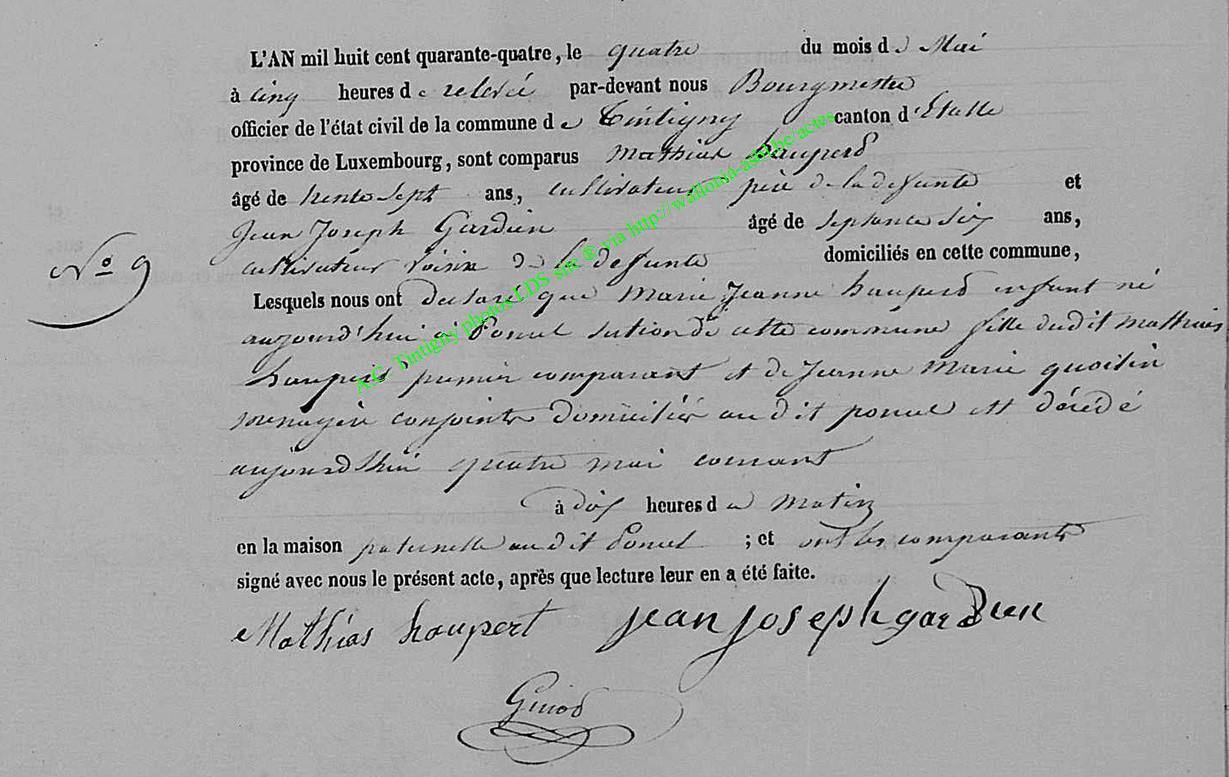 L'AN mil huit cent quarante-quatre, le quatre du mois de Mai
à cinq heures de relevée par-devant nous Bourgmestre
officier de l'état civil de la commune de Tintigny canton d'Etalle
province de Luxembourg, sont comparus Mathias haupert
âgé de trente sept ans, cultivateur père de la defunte et
Jean Joseph Gardien âgé de septante six ans,
N° 9
cultivateur voisin de la defunte domiciliés en cette commune,
Lesquels nous ont declaré que Marie Jeanne haupert enfant né
aujourd'hui à Poncel section de cette commune fille dudit Mathias
haupert premier comparant et de Jeanne Marie
menagère conjoints domiciliés au dit poncel est décédé
aujourd'hui quatre mai courant
à dix heures du Matin
en la maison paternelle au dit Poncel ; et ont les comparants
signé avec nous le présent acte, après que lecture leur en a été faite.
Mathias haupert jean joseph gardien
A.C. Tintigny photos LDS site ® via http://wallonia-asbl.be/actes